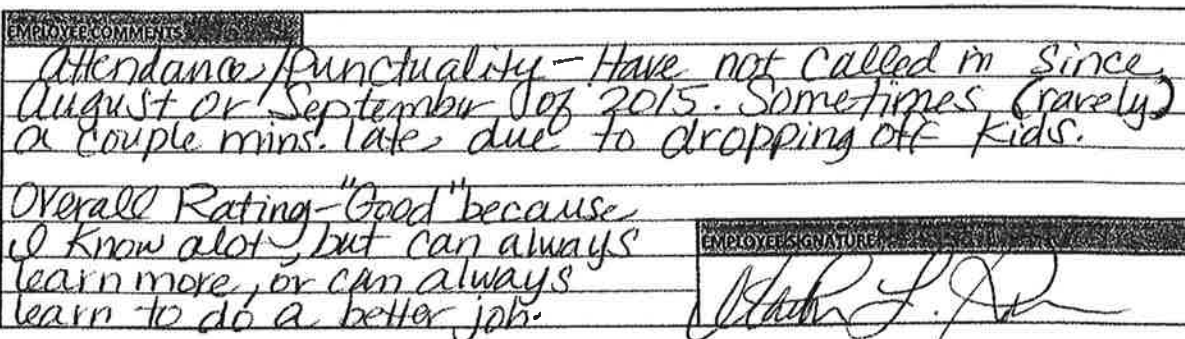 EMPLOYEE COMMENTS
Attendance/Punctuality - Have not called in since
August or September of 2015. Sometimes (rarely)
a couple mins. late, due to dropping off kids.
Overall Rating - "Good" because
I know alot, but can always
learn more, or can always
learn to do a better job.
EMPLOYEE SIGNATURE
L.